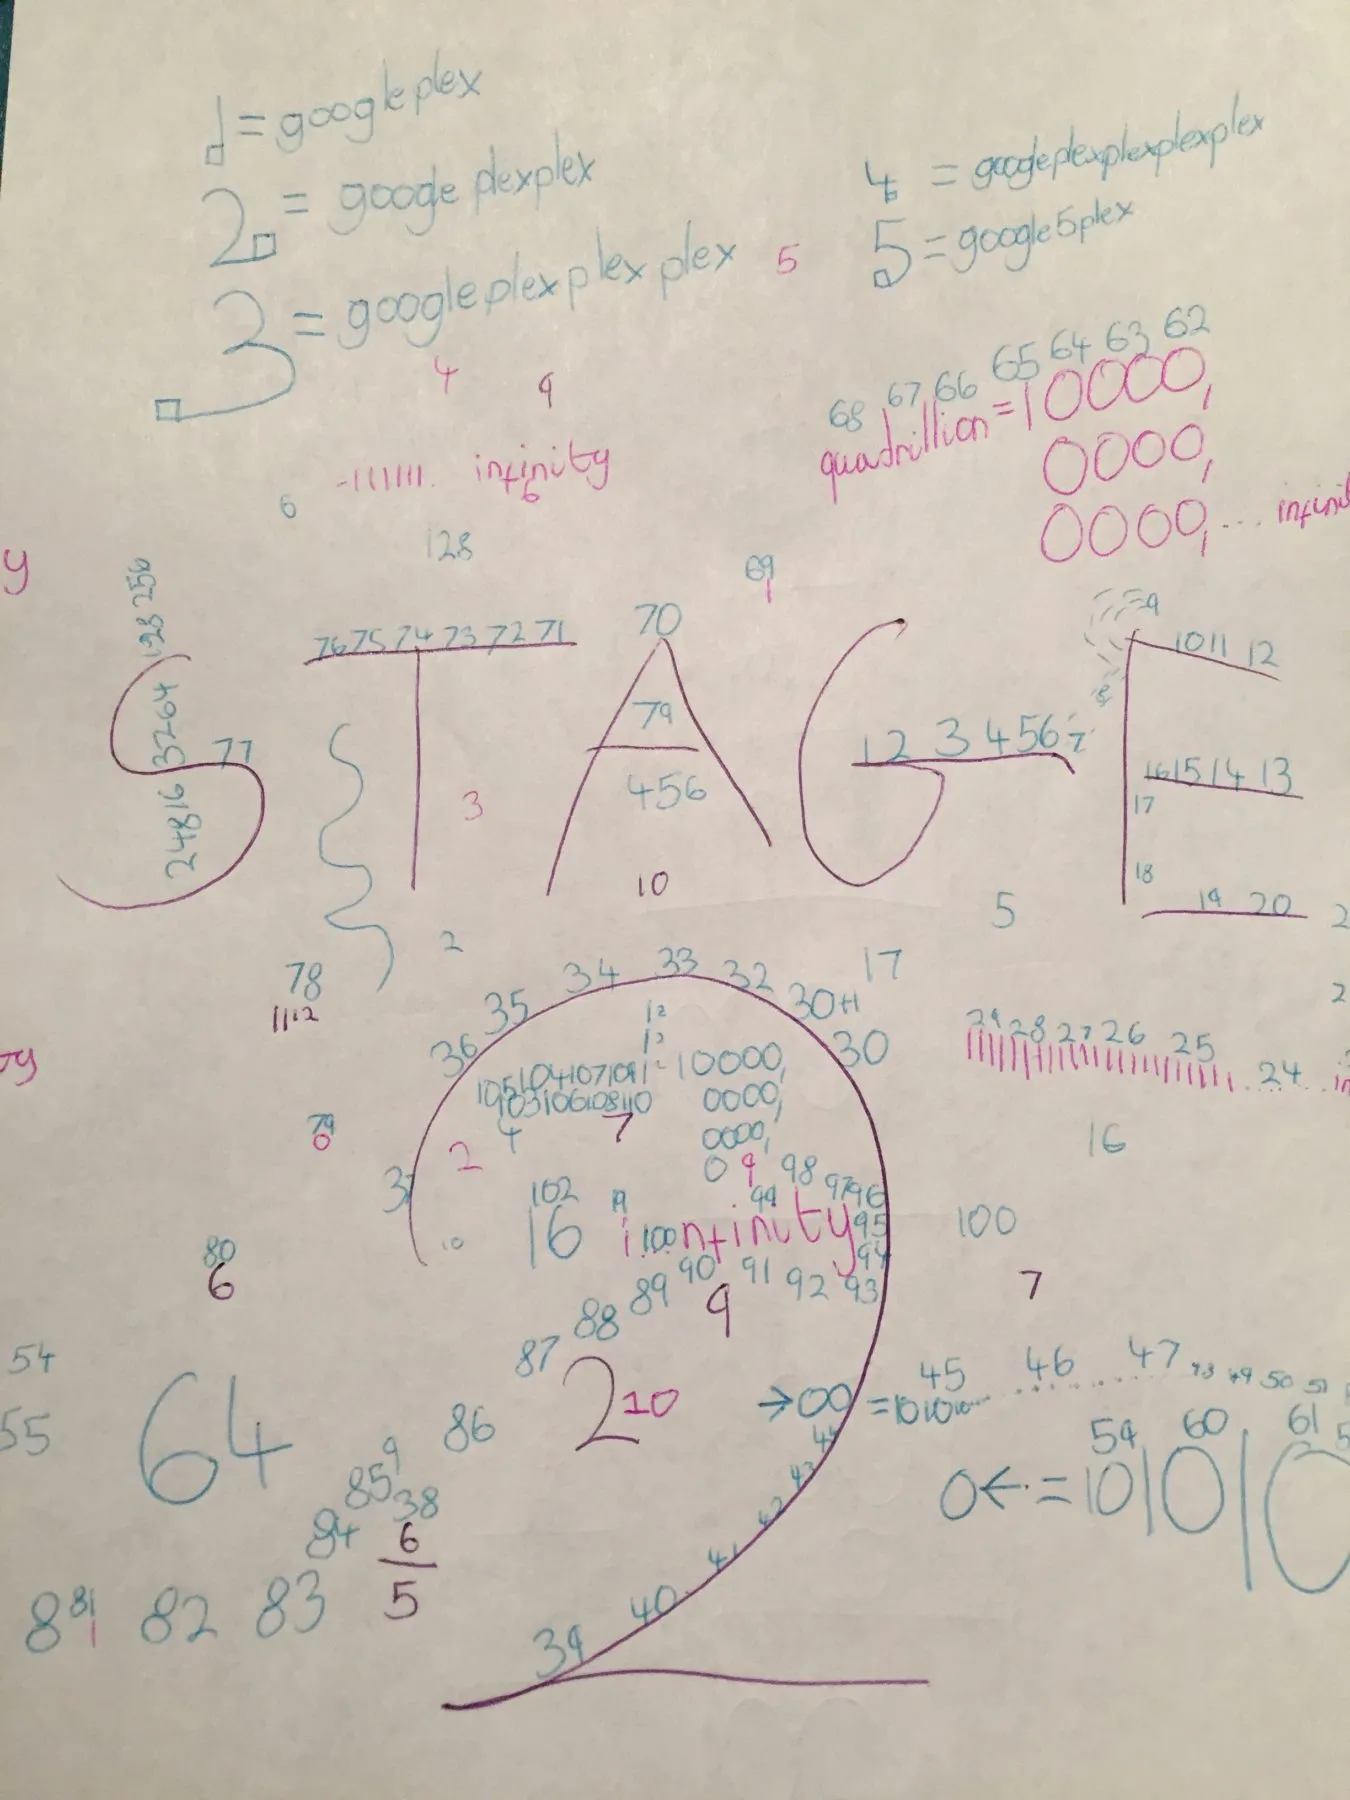 1 = googleplex
2 = google plexplex
3 = googleplexplexplex
4 = googleplexplexplexplex
5 = google5plex
5
4 9
68 67 66 65 64 63 62
quadrillion = 10000,
0000,
0000, ... infini
-111111. infinity
6 6
128
y
69
1
2 4 8 16 32 64 128 256
77
76 75 74 73 72 71
70
79
456
10
STAGE
1 2 3 4 5 6 7
8
9
10 11 12
16 15 14 13
17
18
19 20
3
2
5
17
78
1112
36 35 34 33 32 30+1 30
29 28 27 26 25
24
12
10000,
0000,
0000,
0
105 104 107 109
103 106 108 110
4 7
79
0
2
37
16
9 98
102 99 97 96
16 infinity 95
100
94
10
90 91 92 93
89
88 9
87
86
100
7
80
6
54
55
64
2 10
→00 = 101010
45 46 47 49 50 51
44
43
42
41
40
39
59 60 61
0← = 10 10 10
85 9
84 38
6
5
8 81 82 83
1